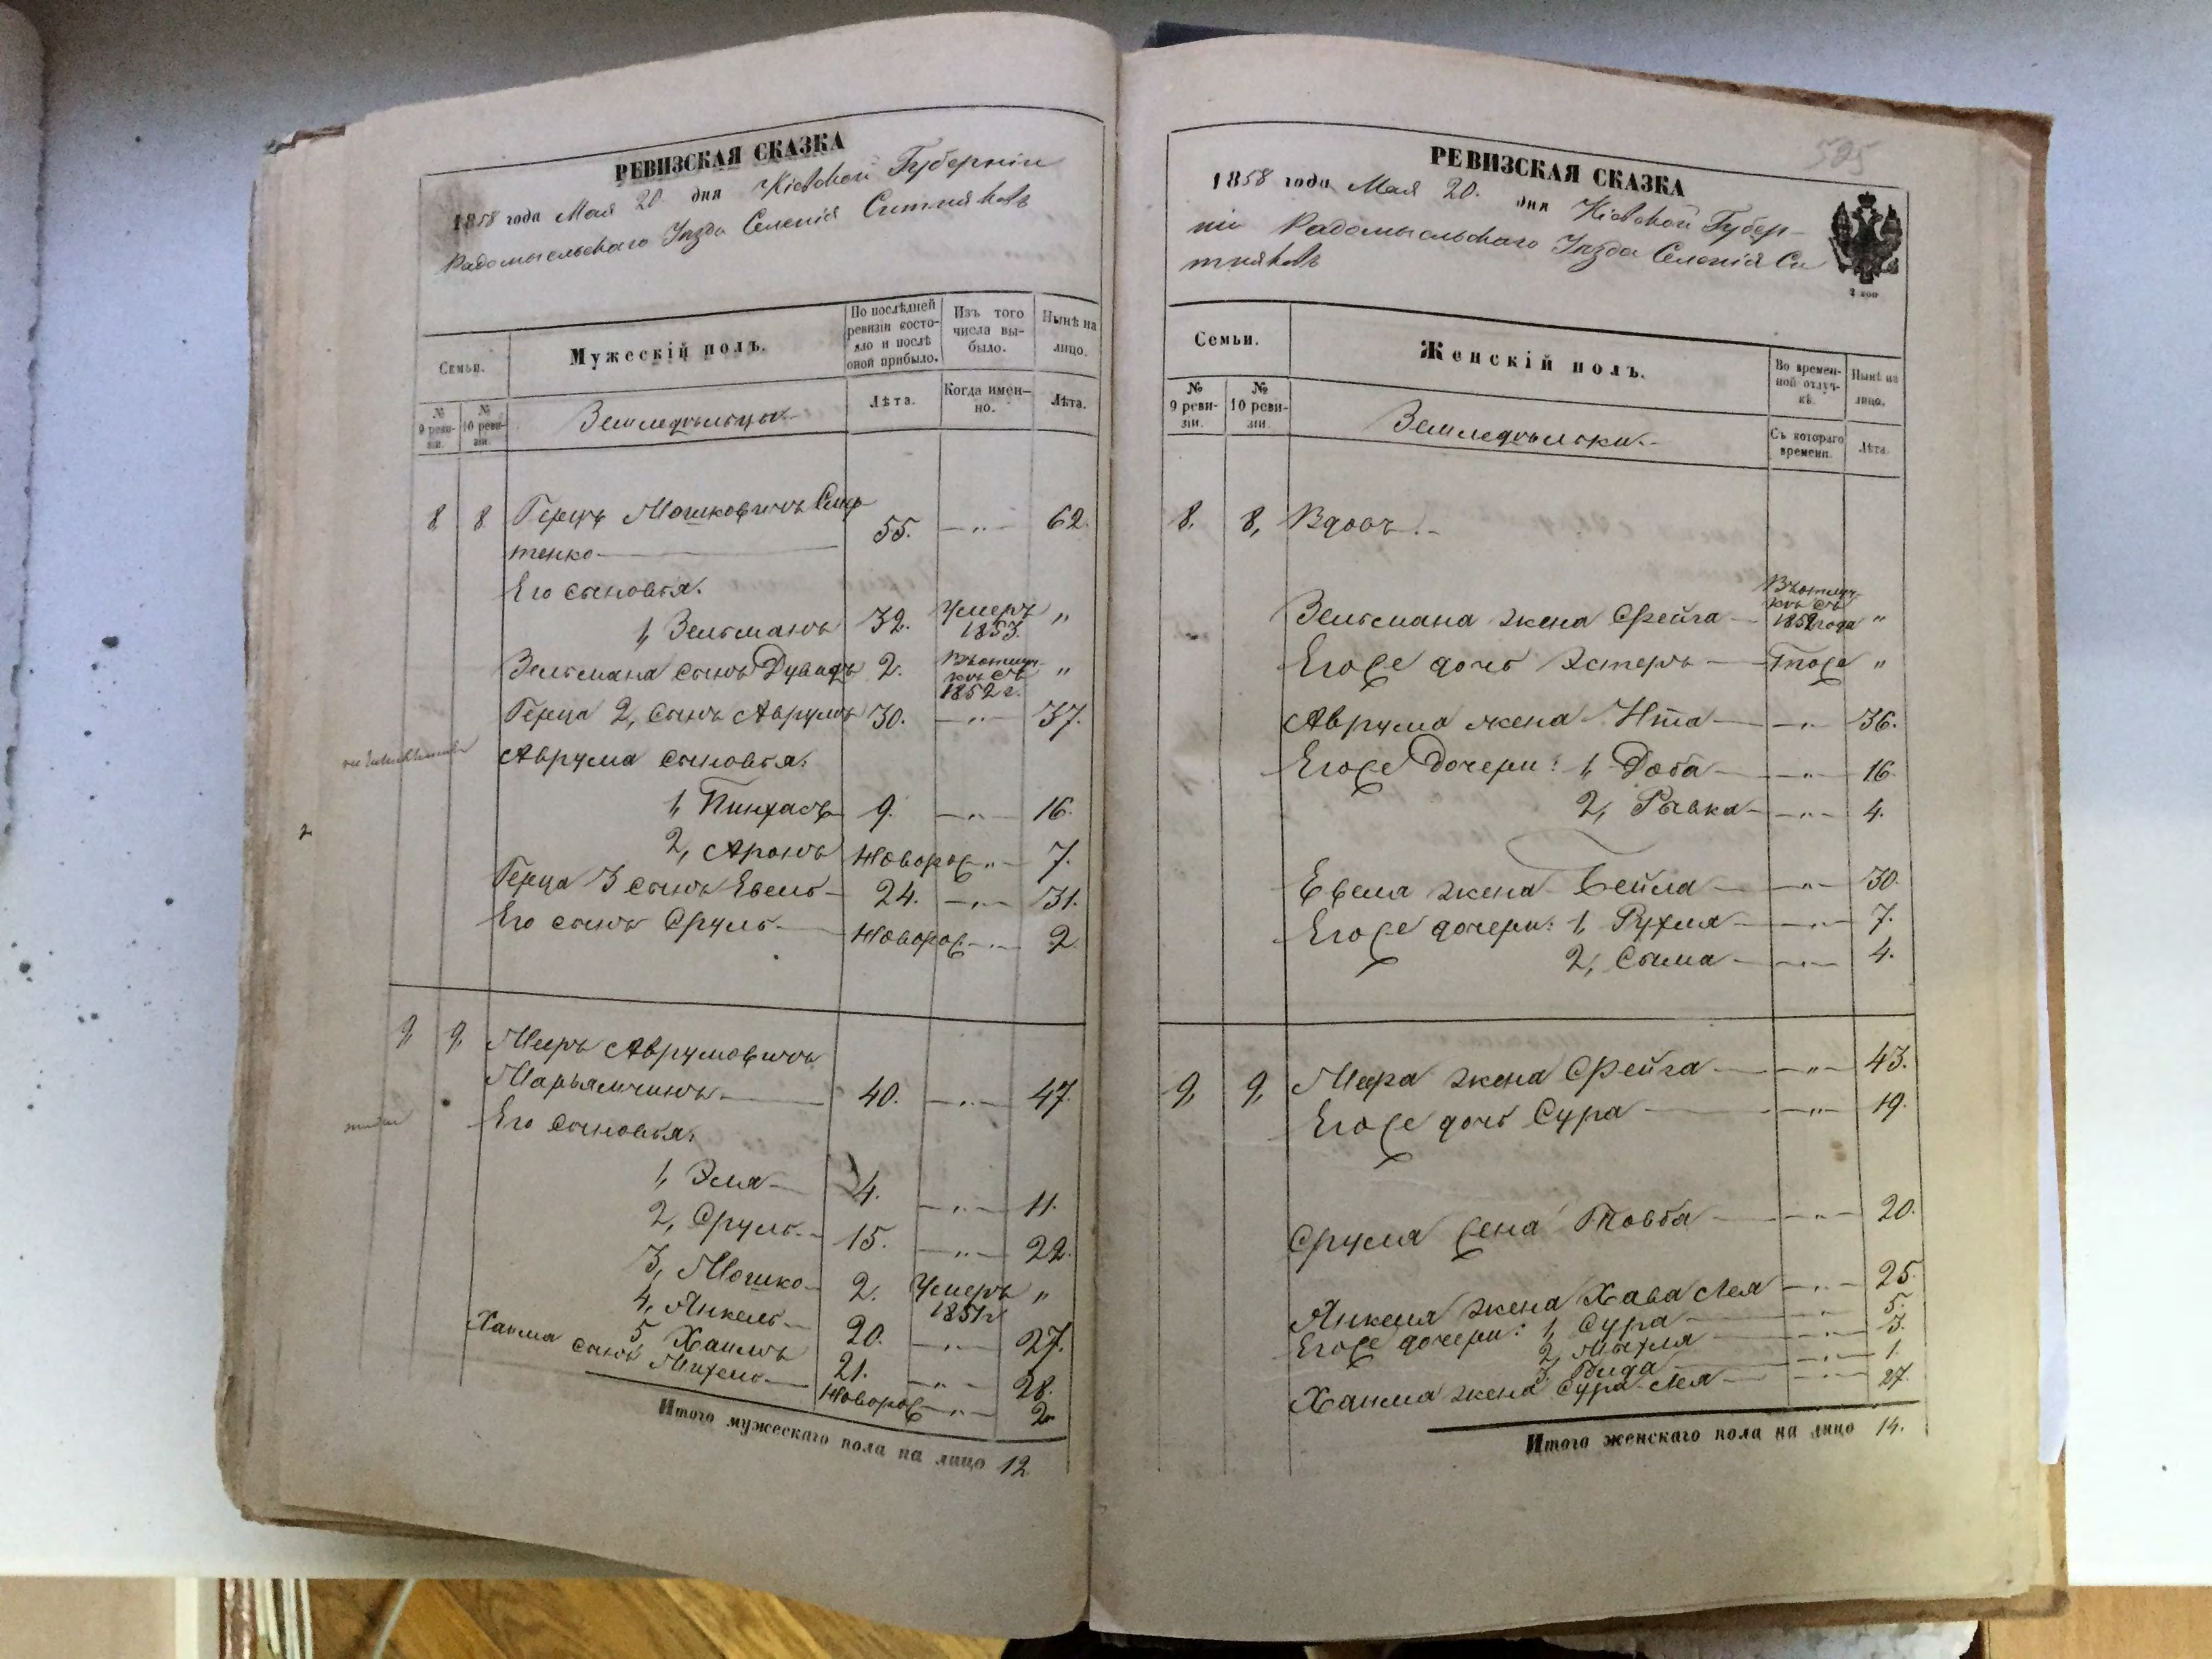 РЕВИЗСКАЯ СКАЗКА
1858 года Мая 20 дня Кіевской Губерніи
Радомысльскаго Уѣзда Селенія Ситняковъ
Семьи.
Мужескій полъ.
По послѣдней ревизіи состояло и послѣ оной прибыло.
Изъ того числа выбыло.
Нынѣ на лицо.
№ 9 ревизіи.
№ 10 ревизіи.
Земледѣльцы
Лѣта.
Когда именно.
Лѣта.
8 8 Герцъ Мошковичъ
тенко 55. —„— 62.
Его сыновья:
1, Зельманъ 32. Умеръ 1853. „
Зельмана сынъ Дувидъ 2. Въ отлучкѣ съ 1852 г. „
Герца 2, сынъ Аврумъ 30. —„— 37.
Аврума сыновья:
1, Пинхасъ 9. —„— 16.
2, Аронъ Новорож —„— 7.
Герца 3 сынъ Евель 24. —„— 31.
Его сынъ Сруль Новорож —„— 2.
9, 9, Мееръ Аврумовичъ
Марьямчикъ 40. —„— 47.
Его сыновья:
1, Эля 4. —„— 11.
2, Сруль 15. —„— 22.
3, Мошко 2. Умеръ 1851 г „
4, Янкель 20. —„— 27.
5, Хаимъ 21. —„— 28.
Хаима сынъ Михель Новорож —„— 2
Итого мужескаго пола на лицо 12
595
РЕВИЗСКАЯ СКАЗКА
1858 года Мая 20. дня Кіевской Губер-
ніи Радомысльскаго Уѣзда Селенія Си
тняковъ
2 коп
Семьи.
Женскій полъ.
Во временной отлучкѣ.
Нынѣ на лицо.
№ 9 ревизіи.
№ 10 ревизіи.
Земледѣлки.
Съ котораго времени.
Лѣта.
8, 8, Вдовъ.
Зельмана жена Фрейга Въ отлучкѣ съ 1852 года „
Его же дочь Эстеръ — Тоже „
Аврума жена Ита —„— 36.
Его же Дочери: 1, Доба —„— 16.
2, Рывка —„— 4.
Евеля жена Бейла —„— 30.
Его же дочери: 1, Рухля —„— 7.
2, Сыма —„— 4.
9, 9, Меера жена Фрейга —„— 43.
Его же дочь Сура —„— 19.
Сруля жена Товба —„— 20.
Янкеля жена Хава Лея —„— 25.
Его же дочери: 1, Сура —„— 5.
2, Мыхля —„— 3.
3, —„— 1.
Хаима жена Сура Лея —„— 27.
Итого женскаго пола на лицо 14.